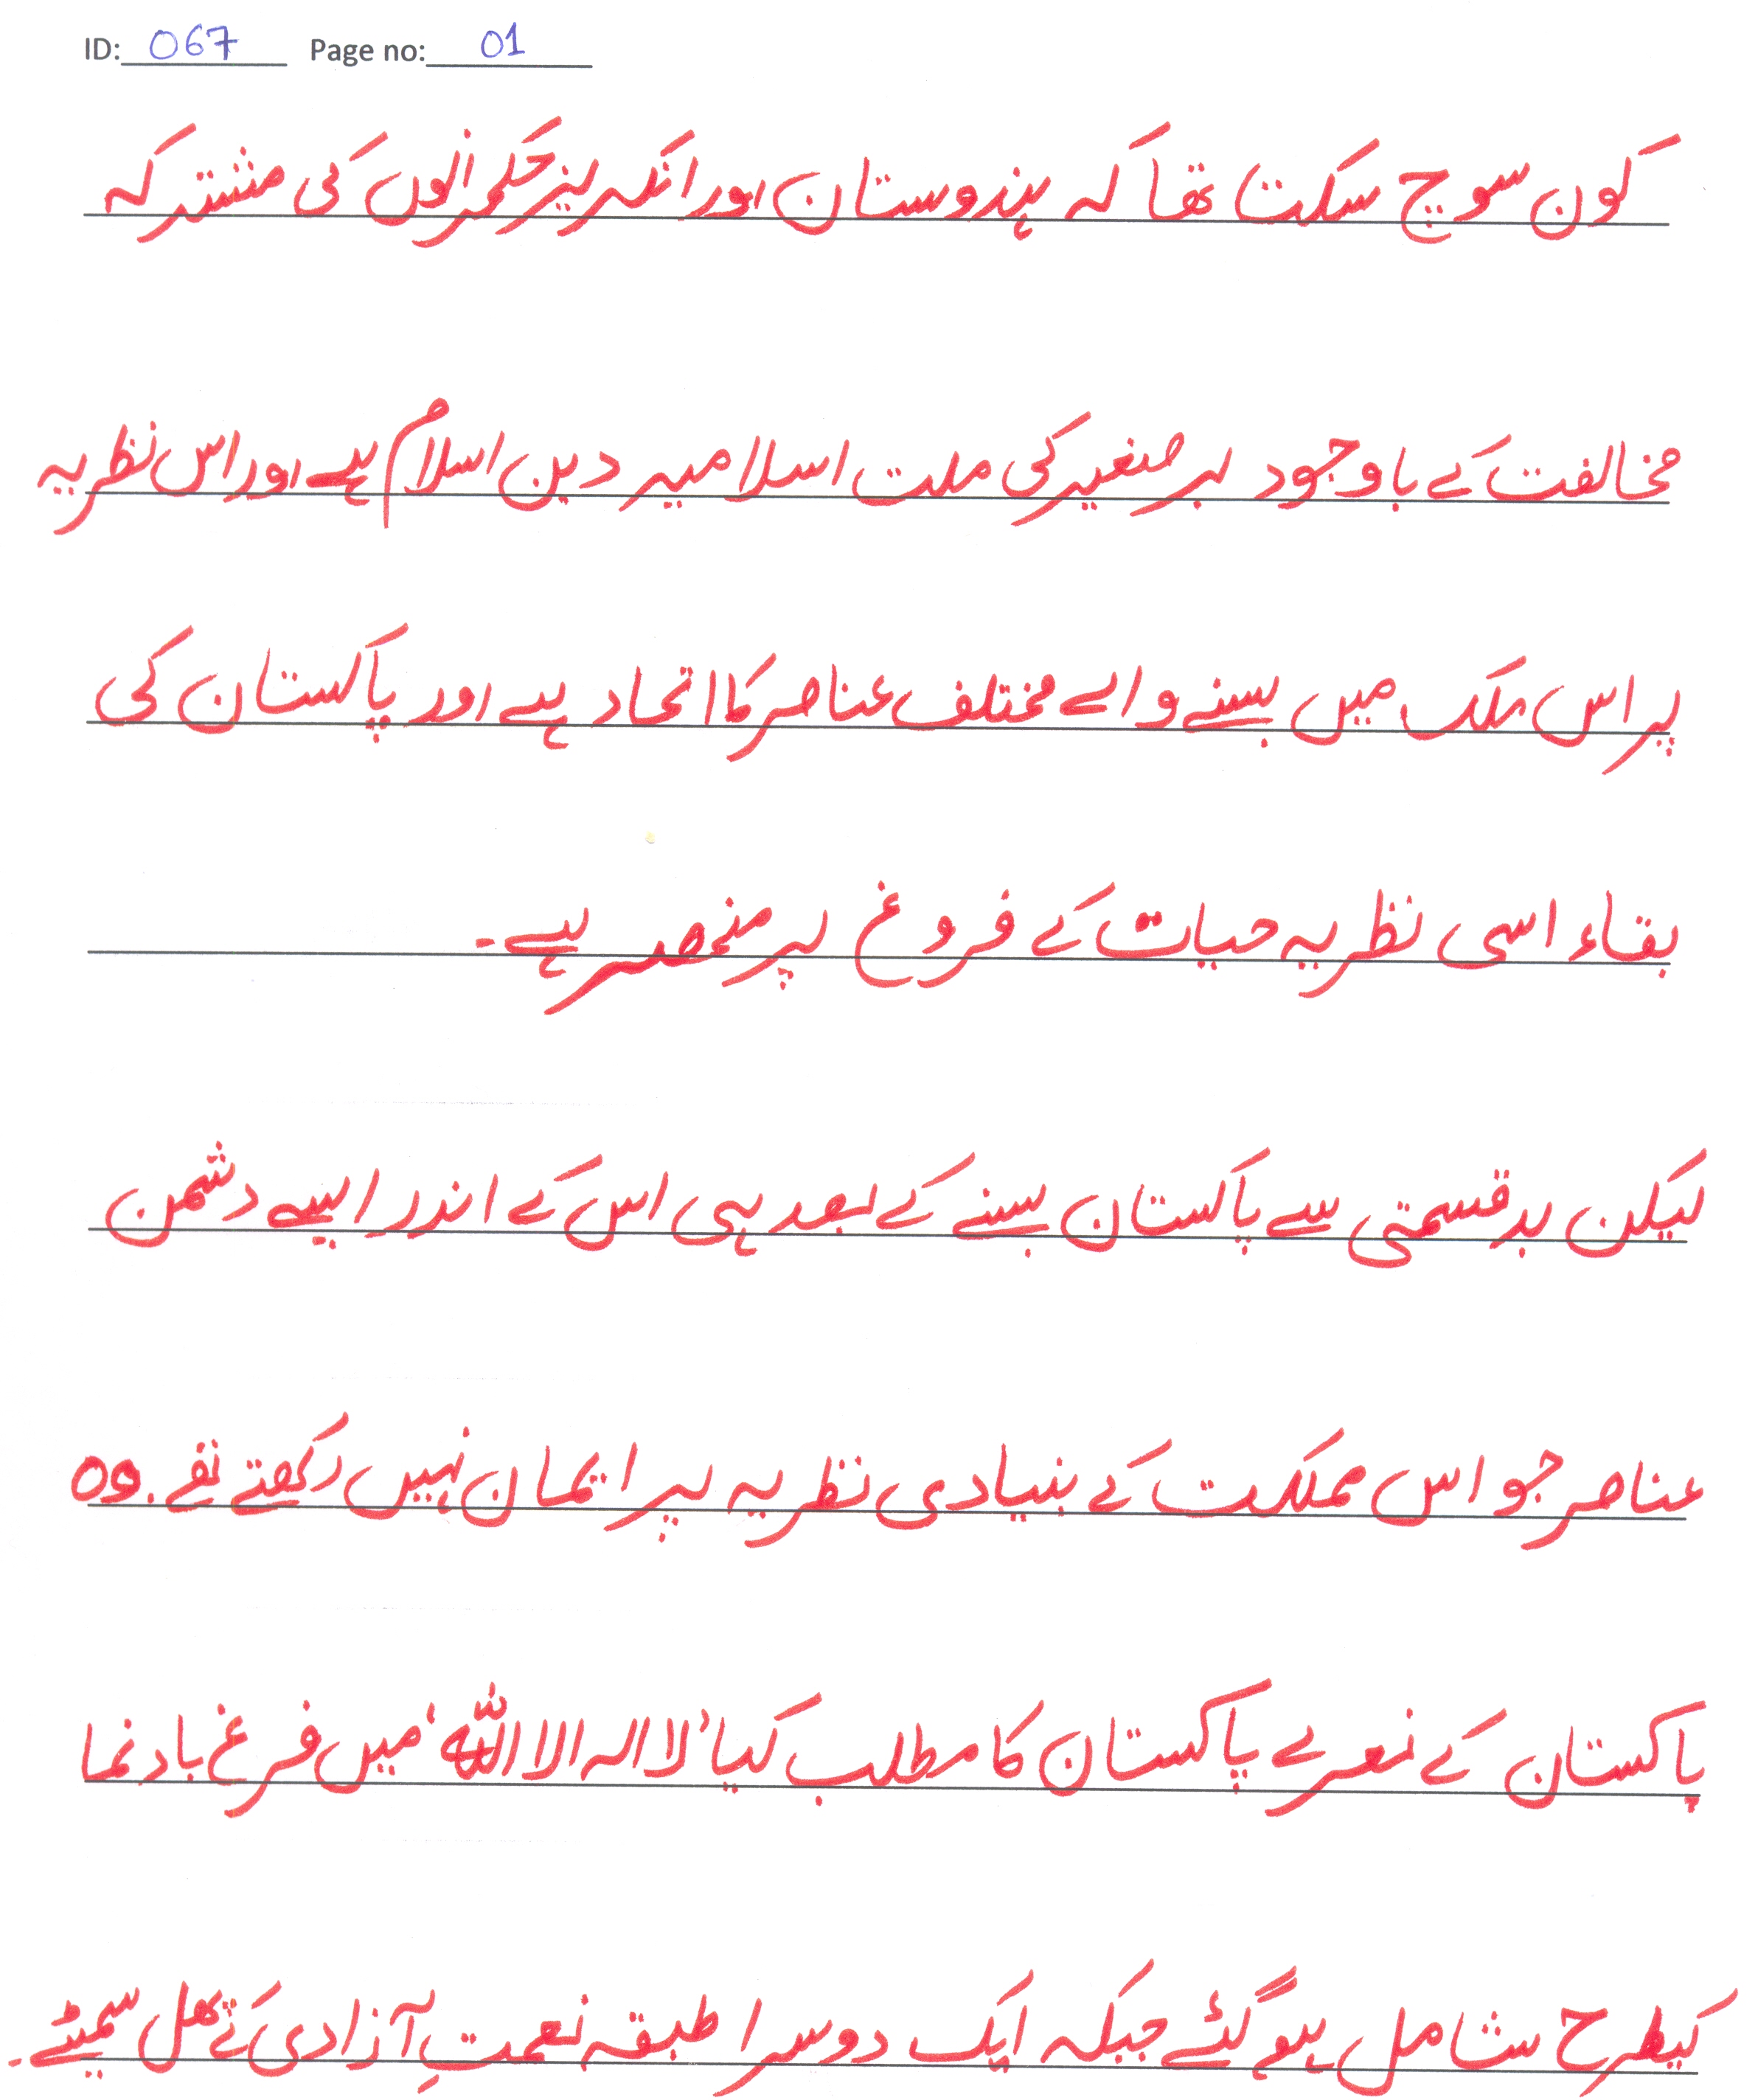 ID: 067 Page no: 01
کون سوچ سکتا تھا کہ ہندوستان اور انگریز حکمرانوں کی مشترکہ
مخالفت کے باوجود برصغیر کی ملت اسلامیہ دین اسلام ہے اور اس نظریہ
پر اس ملک میں بسنے والے مختلف عناصر کا اتحاد ہے اور پاکستان کی
بقاء اسی نظریہ حیات کے فروغ پر منحصر ہے۔
لیکن بدقسمتی سے پاکستان بننے کے بعد ہی اس کے اندر ایسے دشمن
عناصر جو اس مملکت کے بنیادی نظریہ پر ایمان نہیں رکھتے تھے۔ وہ
پاکستان کے نعرے پاکستان کا مطلب کیا ’لا الہ الا اللہ‘ میں فرغ باد نما
کیطرح شامل ہو گئے جبکہ ایک دوسرا طبقہ نعمتِ آزادی کے پھل سمیٹے۔